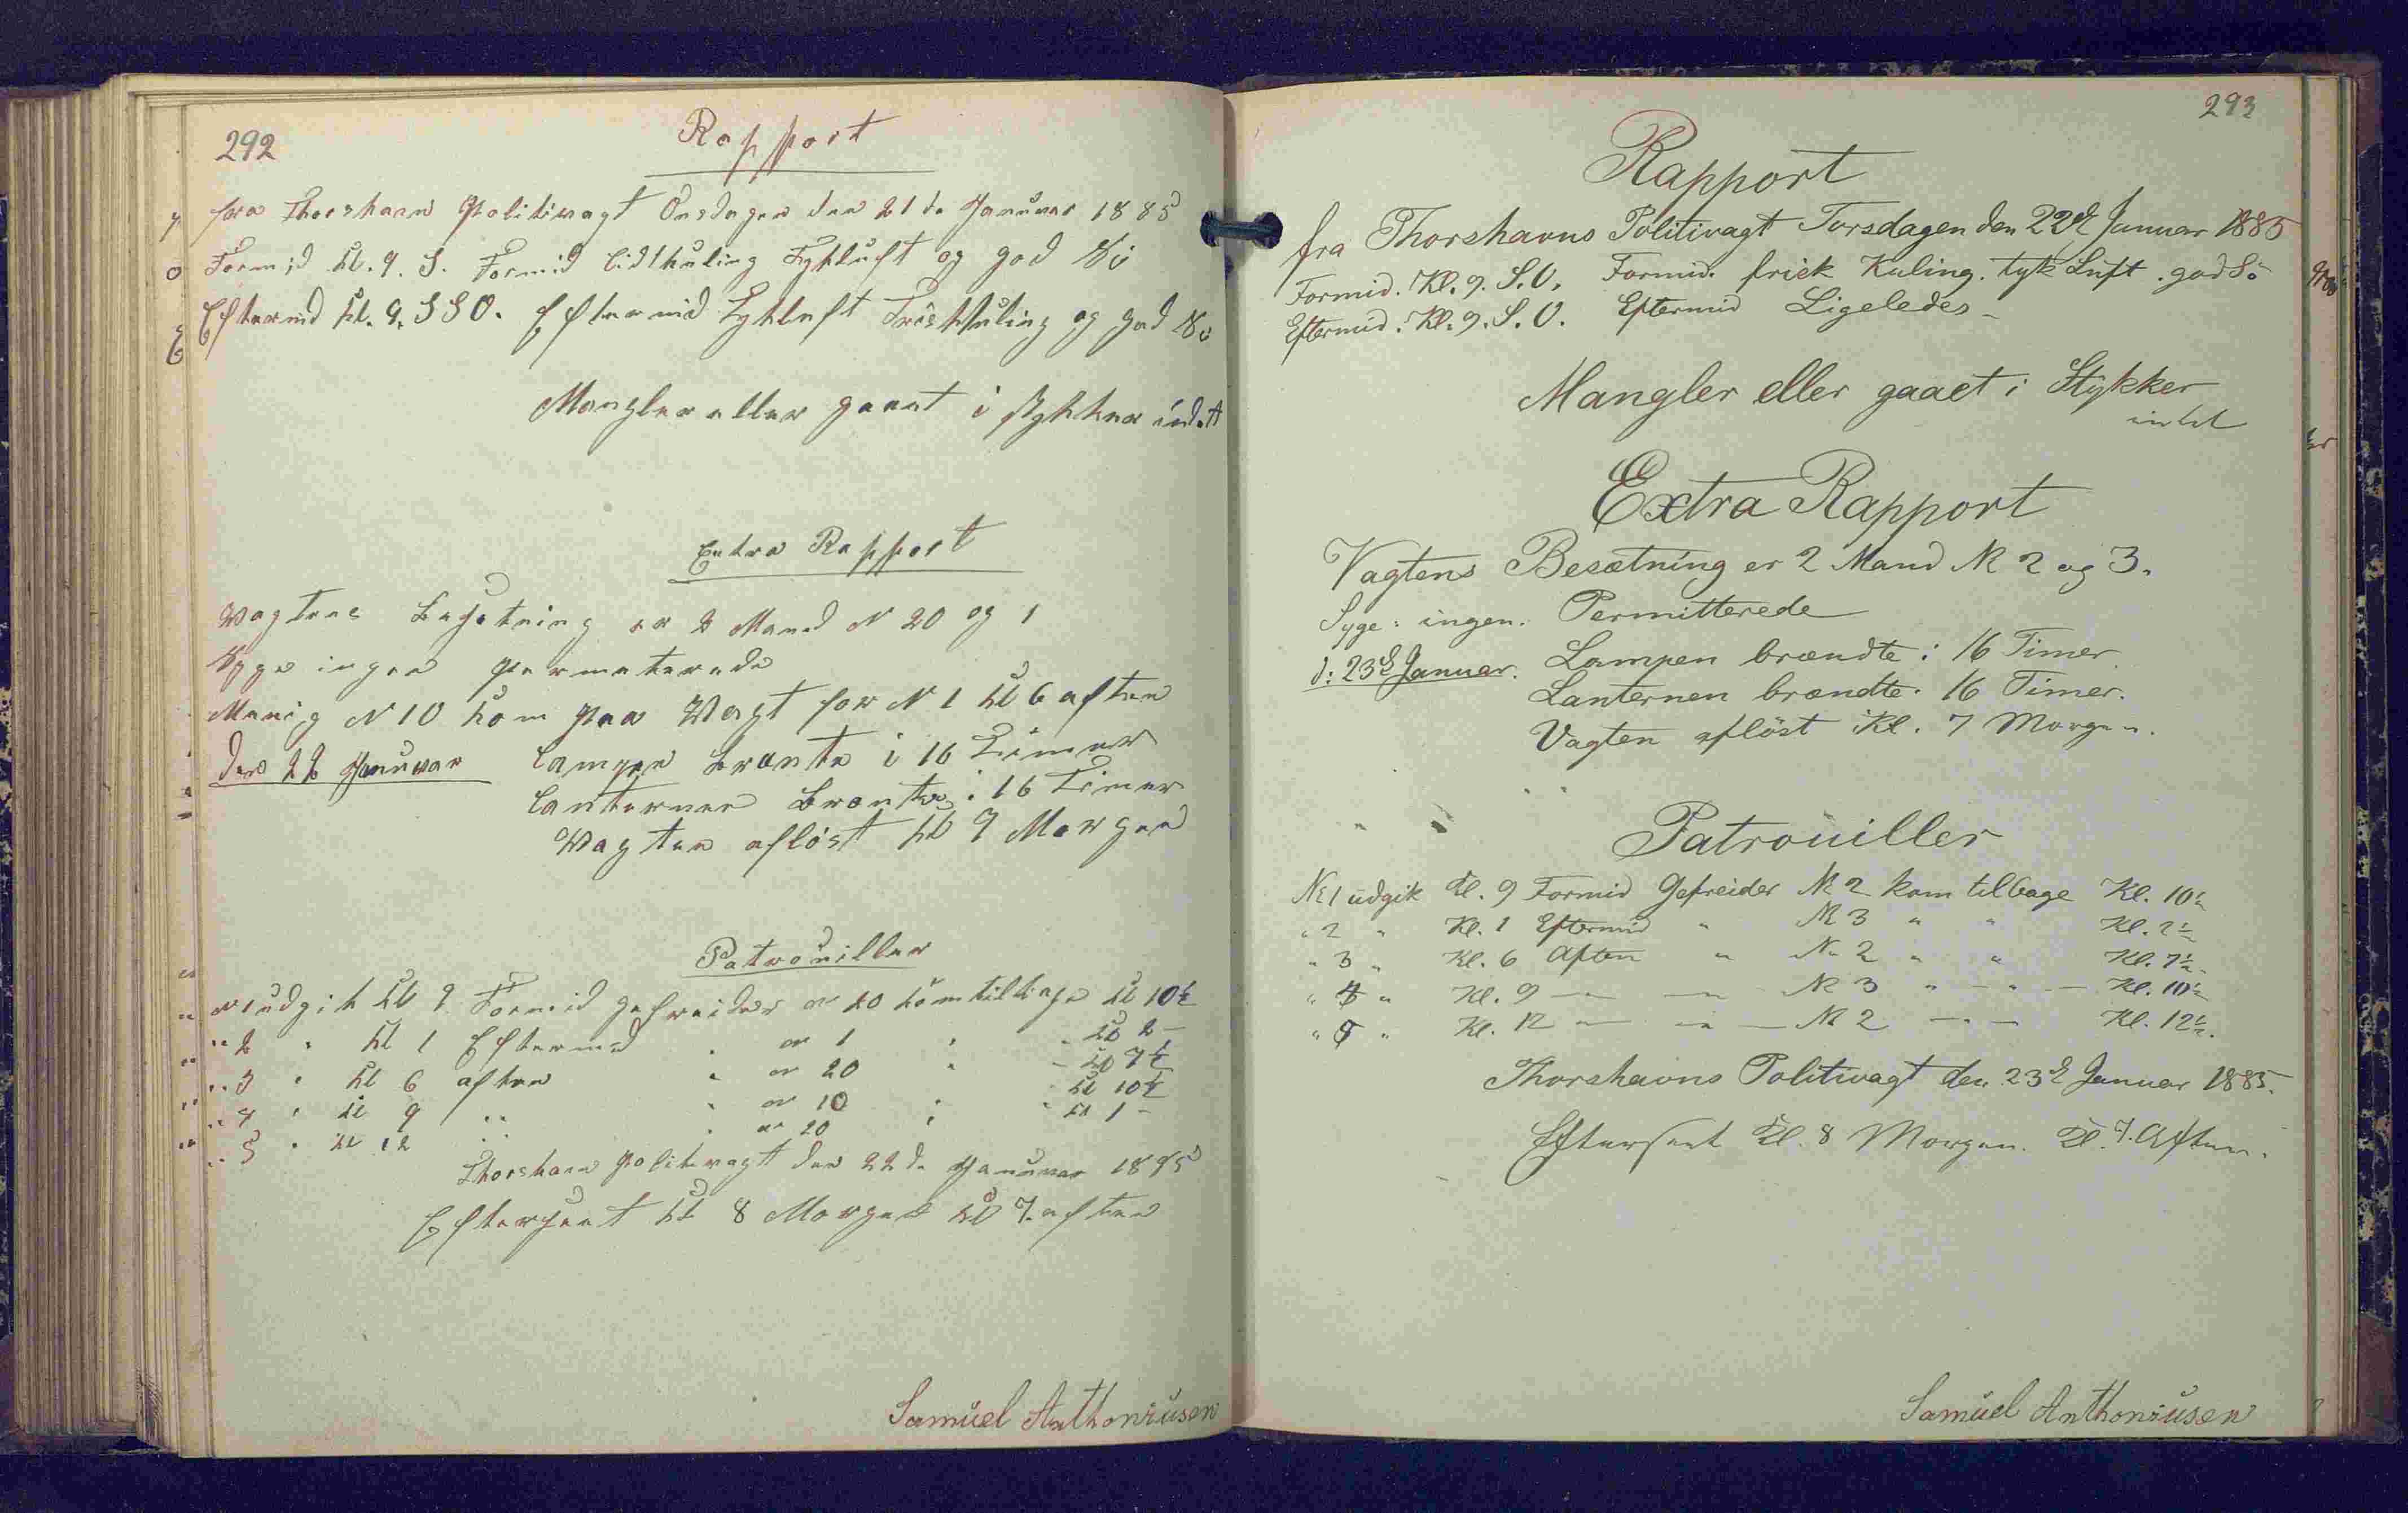 292
Rapport
fra Thorshavn Politivagt Onsdagen den 21de Januar 1885
Formid Kl. 9. S. Formid lidtkuling Tykluft og god Sö
Eftermid Kl. 9. SSO. Eftermid Tykluft Friskkuling og god Sö
Mangler eller gaaet i stykker indet
Extra Rapport
Vagtens Besetning er 2 Mand N 20 og 1
Syge ingen Permeterede
Menig N 10 kom paa Vagt for N 1 Kl 6 aften
den 22 Januar Lampen Brænte i 16 Timer
Lanternen Brænte i 16 Timer
Vagten aflöst Kl 7 Morgen
Patrouiller
N 1 udgik Kl 9 Formid gefreider N 20 kom tilbage Kl 10½
" 2 " Kl 1 Eftermid " N 1 " " Kl 2 -
" 3 " Kl 6 aften " N 20 " - Kl 7½
" 4 " Kl 9 " " N 10 " " Kl 10½
" 5 " Kl 12 " " N 20 " " Kl 1 -
Thorshavn Politivagt den 22de Januar 1885
Efterseet Kl 8 Morgen Kl 7. aften
Samuel Anthoniusen
293
Rapport
fra Thorshavns Politivagt Torsdagen den 22de Januar 1885
Formid. Kl. 9. S.O. Formid. frisk Kuling. tyk Luft. god Sö
Eftermid. Kl. 9. S.O. Eftermid Ligeledes -
Mangler eller gaaet i Stykker
intet
Extra Rapport
Vagtens Besætning er 2 Mand № 2 og 3.
Syge: ingen. Permitterede
d: 23de Januar. Lampen brændte i 16 Timer.
Lanternen brændte i 16 Timer.
Vagten aflöst Kl. 7 Morgen.
Patrouiller
№ 1 udgik Kl. 9 Formid Gefreider № 2 kom tilbage Kl. 10½
" 2 " Kl. 1 Eftermid " № 3 " " Kl. 2½
" 3 " Kl. 6 Aften " № 2 " " Kl. 7½
" 4 " Kl. 9 — — № 3 " - " - Kl. 10½
" 5 " Kl. 12 — — № 2 — — Kl. 12½.
Thorshavns Politivagt den 23de Januar 1885.
Efterseet Kl. 8 Morgen. Kl. 7. Aften.
Samuel Anthoniusen